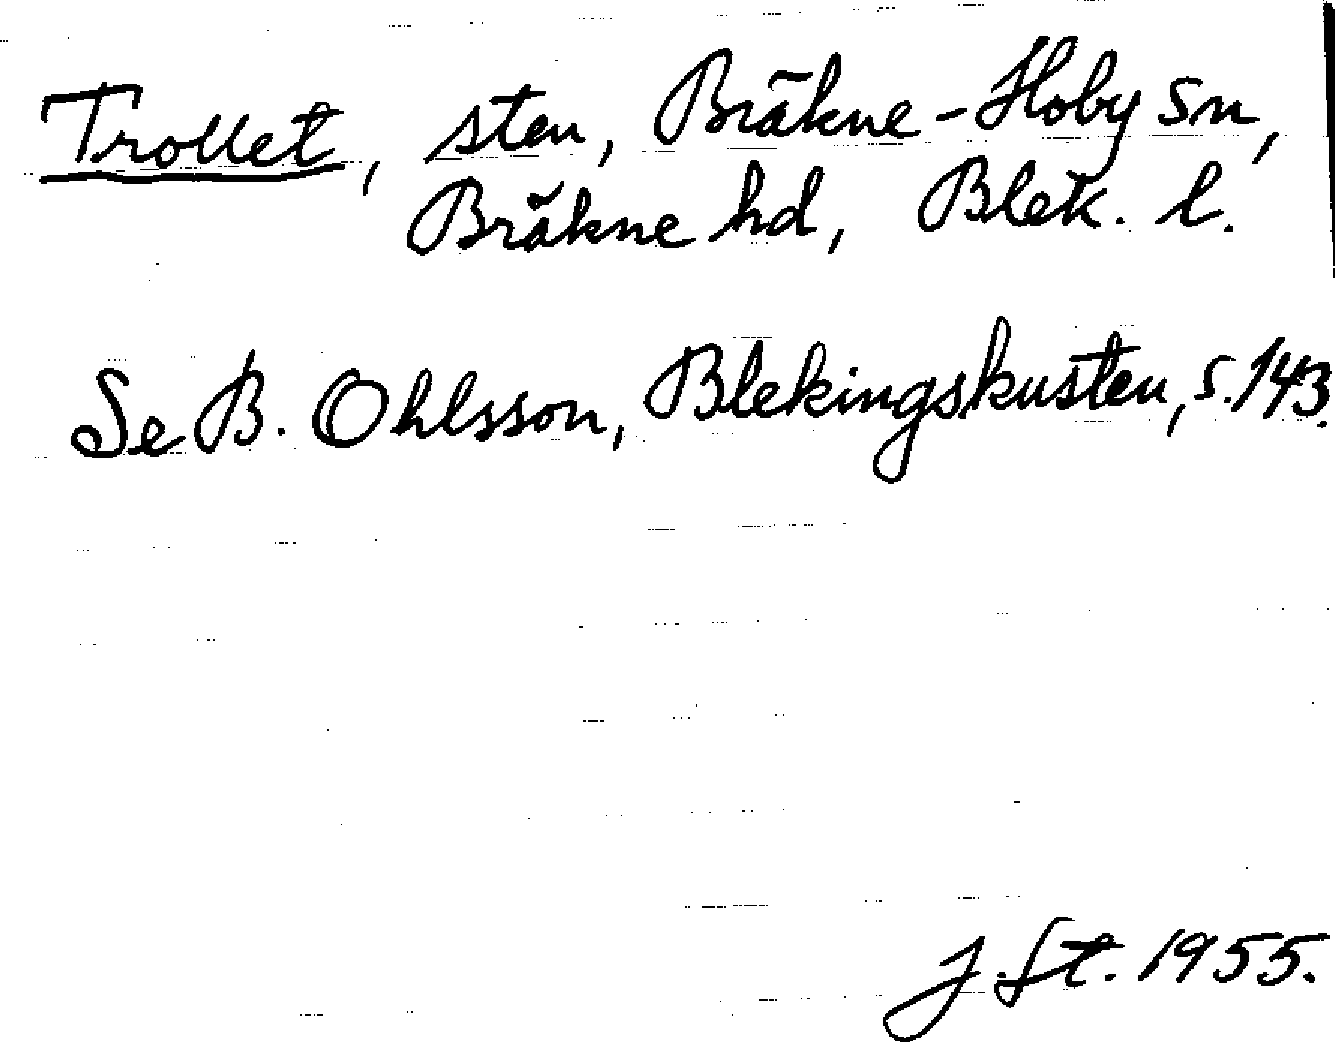 Trollet, sten, Bräkne-Hoby sn,
Bräkne hd, Blek. l.
Se B. Ohlsson, Blekingskusten, s. 143.
J. St. 1955.